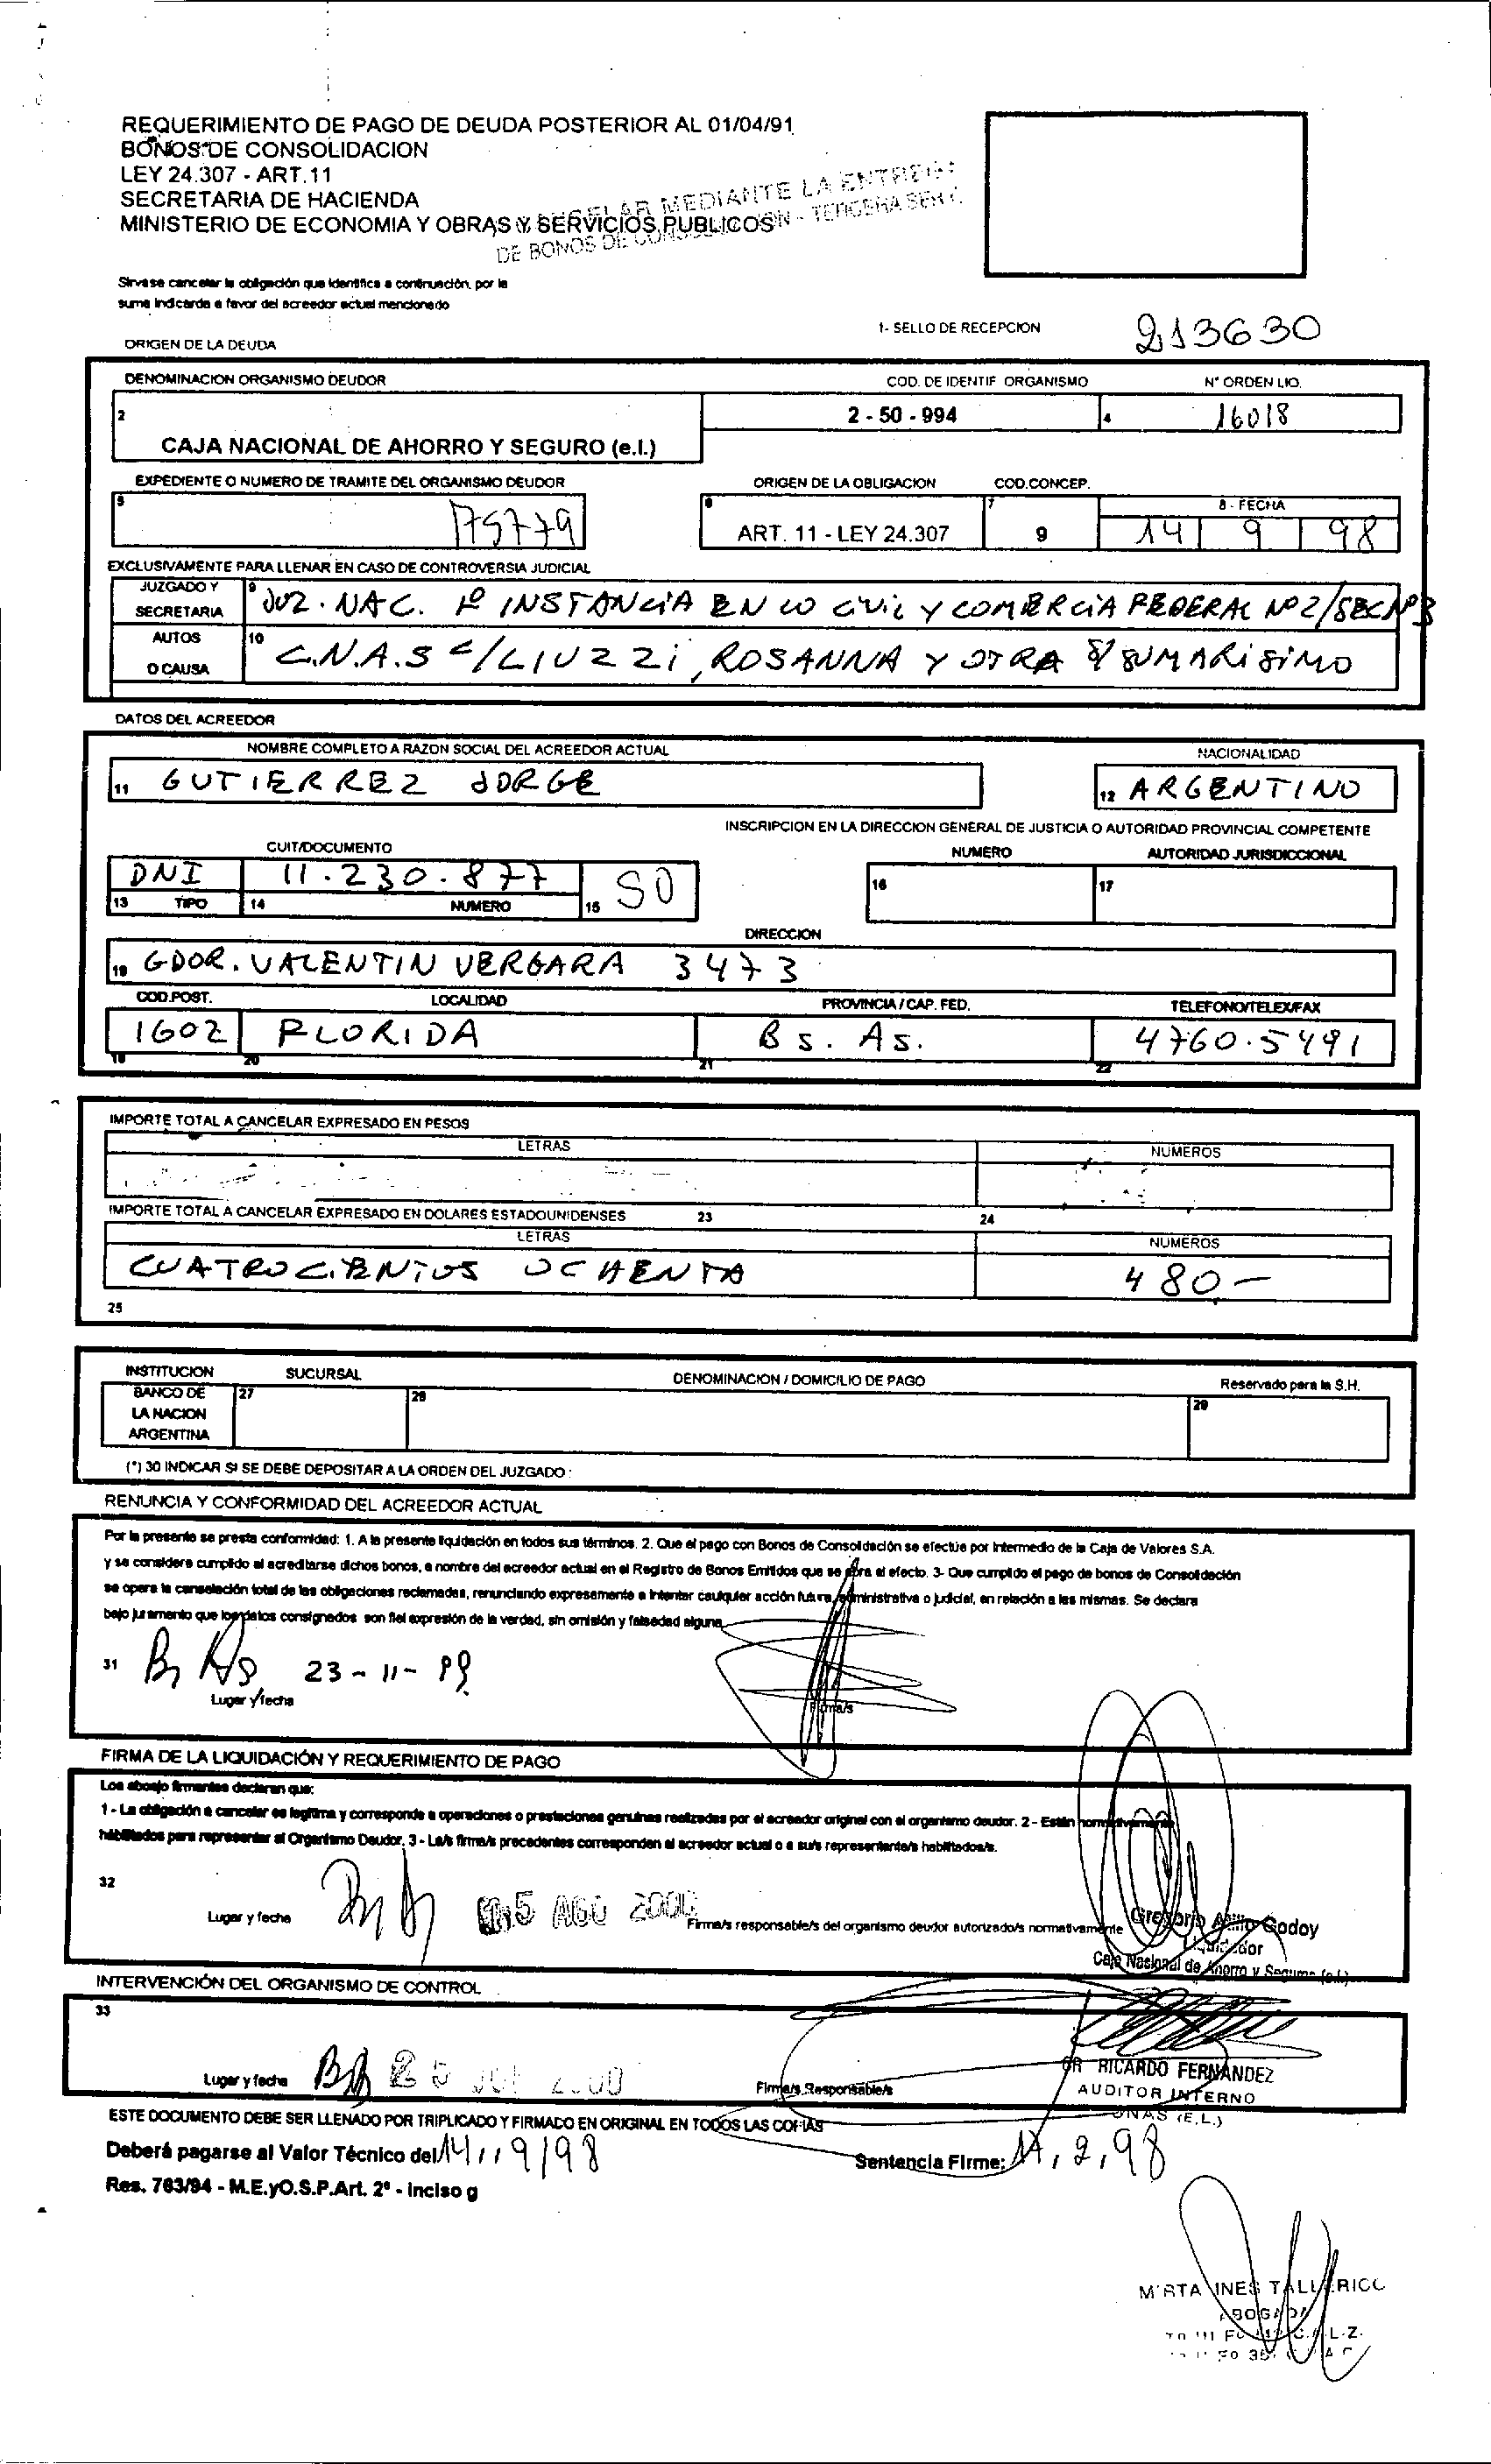 REQUERIMIENTO DE PAGO DE DEUDA POSTERIOR AL 01/04/91
BONOS DE CONSOLIDACION
LEY 24.307 - ART.11
SECRETARIA DE HACIENDA
MINISTERIO DE ECONOMIA Y OBRAS Y SERVICIOS PUBLICOS
MEDIANTE LA ENTREGA
DE BONOS DE CONSOLIDACION - TERCERA SERIE
Sirvase cancelar la obligación que identifica a continuación, por la
suma indicarda a favor del acreedor actual mencionado
1- SELLO DE RECEPCION
213630
ORIGEN DE LA DEUDA
DENOMINACION ORGANISMO DEUDOR COD. DE IDENTIF ORGANISMO N° ORDEN LIO.
2 2 - 50 - 994 4 16018
CAJA NACIONAL DE AHORRO Y SEGURO (e.l.)
EXPEDIENTE O NUMERO DE TRAMITE DEL ORGANISMO DEUDOR ORIGEN DE LA OBLIGACION COD.CONCEP.
5 6 7 8 - FECHA
175779 ART. 11 - LEY 24.307 9 14 9 98
EXCLUSIVAMENTE PARA LLENAR EN CASO DE CONTROVERSIA JUDICIAL
JUZGADO Y SECRETARIA 9 JUZ. NAC. 1º INSTANCIA EN LO CIVIL Y COMERCIA FEDERAL Nº2/SEC Nº3
AUTOS O CAUSA 10 C.N.A.S c/LIUZZI, ROSANNA Y OTRA S/ SUMARISIMO
DATOS DEL ACREEDOR
NOMBRE COMPLETO A RAZON SOCIAL DEL ACREEDOR ACTUAL NACIONALIDAD
11 GUTIERREZ JORGE 12 ARGENTINO
INSCRIPCION EN LA DIRECCION GENERAL DE JUSTICIA O AUTORIDAD PROVINCIAL COMPETENTE
CUIT/DOCUMENTO NUMERO AUTORIDAD JURISDICCIONAL
DNI 11.230.877 SO 16 17
13 TIPO 14 NUMERO 15
DIRECCION
19 GDOR. VALENTIN VERGARA 3473
COD.POST. LOCALIDAD PROVINCIA / CAP. FED. TELEFONO/TELEX/FAX
1602 FLORIDA Bs. As. 4760.5491
18 20 21 22
IMPORTE TOTAL A CANCELAR EXPRESADO EN PESOS
LETRAS NUMEROS
IMPORTE TOTAL A CANCELAR EXPRESADO EN DOLARES ESTADOUNIDENSES 23 24
LETRAS NUMEROS
CUATROCIENTOS OCHENTA 480.-
25
INSTITUCION SUCURSAL DENOMINACION / DOMICILIO DE PAGO Reservado para la S.H.
BANCO DE 27 28 29
LA NACION
ARGENTINA
(*) 30 INDICAR SI SE DEBE DEPOSITAR A LA ORDEN DEL JUZGADO :
RENUNCIA Y CONFORMIDAD DEL ACREEDOR ACTUAL
Por la presente se presta conformidad: 1. A la presente liquidación en todos sus términos. 2. Que el pago con Bonos de Consoldación se efectúe por intermedio de la Caja de Valores S.A.
y se considere cumplido al acreditarse dichos bonos, a nombre del acreedor actual en el Registro de Bonos Emitidos que se abra al efecto. 3- Que cumplido el pago de bonos de Consoldación
se opera la canselación total de las obligaciones reclamadas, renunciando expresamente a intentar caulquier acción futura, administrativa o judicial, en relación a las mismas. Se declara
bajo juramento que los datos consignados son fiel expresión de la verdad, sin omisión y falsedad alguna
31 Bs As 23-11-99
Lugar y fecha Firma/s
FIRMA DE LA LIQUIDACIÓN Y REQUERIMIENTO DE PAGO
Los abonjo firmantes declaran que:
1 - La obligación a cancelar es legítima y corresponde a operaciones o prestaciones genuinas realizadas por el acreador original con el organismo deudor. 2 - Están normativamente
habilitados para representar al Organismo Deudor. 3 - La/s firma/s precedentes corresponden al acreedor actual o a su/s representante/s habilitados/s.
32
Lugar y fecha 5 AGO 2000 Firma/s responsable/s del organismo deudor autorizado/s normativamente
Gregorio Godoy
Liquidador
Caja Nacional de Ahorro y Seguro (e.l.)
INTERVENCIÓN DEL ORGANISMO DE CONTROL
33
Lugar y fecha Firma/s Responsable/s
DR RICARDO FERNANDEZ
AUDITOR INTERNO
CNAS (E.L.)
ESTE DOCUMENTO DEBE SER LLENADO POR TRIPLICADO Y FIRMADO EN ORIGINAL EN TODOS LAS COPIAS
Deberá pagarse al Valor Técnico del 14/9/98 Sentencia Firme: 17, 2, 98
Res. 763/94 - M.E.yO.S.P.Art. 2° - inciso g
MIRTA INES TALLARICO
ABOGADA